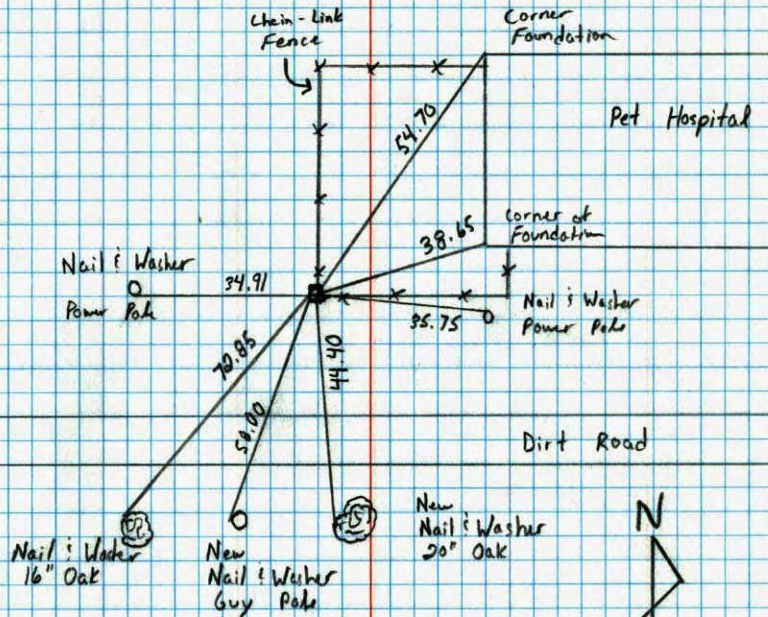 Chain-Link
Fence
Corner
Foundation
54.70
Pet Hospital
Corner of
Foundation
38.65
Nail & Washer
Power Pole
34.91
Nail & Washer
Power Pole
35.75
72.85
50.00
44.40
Dirt Road
Nail & Washer
16" Oak
New
Nail & Washer
Guy Pole
New
Nail & Washer
20" Oak
N